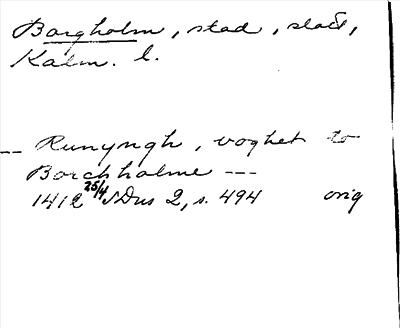 Borgholm, stad, slott,
Kalm. l.
-- Runyngh, voghet to
Borchholme ---
1412 25/4 SDns 2, s. 494 orig